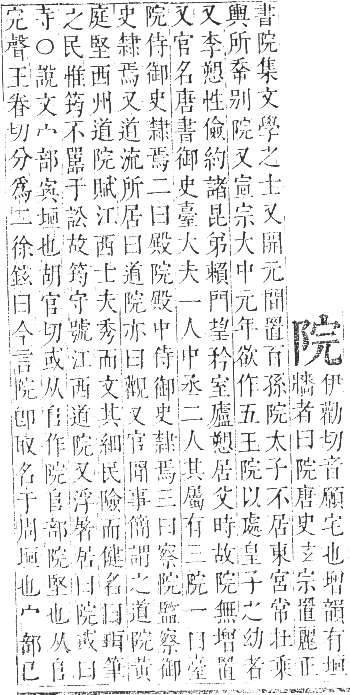 院
伊勸切音願宅也增韻有垣
牆者曰院唐史玄宗置麗正
書院集文學之士又開元間置百孫院太子不居東宮常在乘
輿所幸別院又宣宗大中元年欲作五王院以處皇子之幼者
又李愬性儉約諸昆弟賴門望矜室廬愬居父時故院無增置
又官名唐書御史臺大夫一人中丞二人其屬有三院一曰臺
院侍御史隸焉二曰殿院殿中侍御史隸焉三曰察院監察御
史隸焉又道流所居曰道院亦曰觀又官閒事簡謂之道院黃
庭堅西州道院賦江西士夫秀而文其細民險而健名曰珥筆
之民惟筠不囂于訟故筠守號江西道院又浮屠居曰院或曰
寺○說文宀部寏垣也胡官切或从𨸏作院𨸏部院堅也从𨸏
完聲王眷切分爲二徐鉉曰今言院卽取名于周垣也宀部已